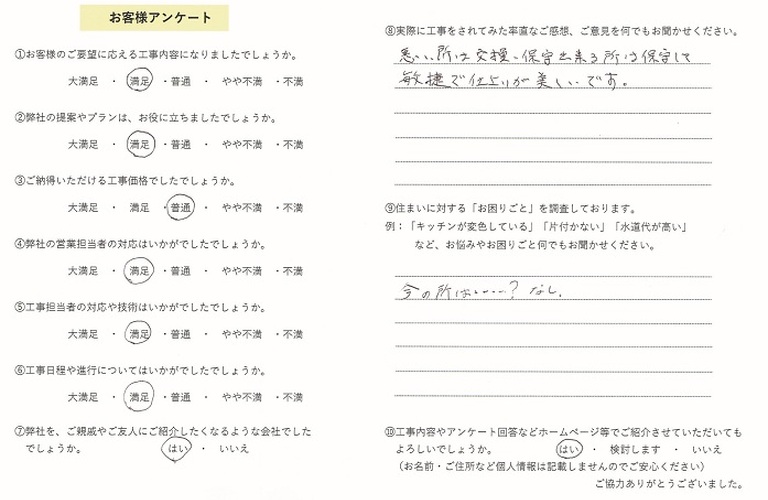 お客様アンケート
①お客様のご要望に応える工事内容になりましたでしょうか。
大満足 ・ 満足 ・普通 ・ やや不満 ・不満
②弊社の提案やプランは、お役に立ちましたでしょうか。
大満足 ・ 満足 ・普通 ・ やや不満 ・不満
③ご納得いただける工事価格でしたでしょうか。
大満足 ・ 満足 ・普通 ・ やや不満 ・不満
④弊社の営業担当者の対応はいかがでしたでしょうか。
大満足 ・ 満足 ・普通 ・ やや不満 ・不満
⑤工事担当者の対応や技術はいかがでしたでしょうか。
大満足 ・ 満足 ・普通 ・ やや不満 ・不満
⑥工事日程や進行についてはいかがでしたでしょうか。
大満足 ・ 満足 ・普通 ・ やや不満 ・不満
⑦弊社を、ご親戚やご友人にご紹介したくなるような会社でした
でしょうか。 はい ・ いいえ
⑧実際に工事をされてみた率直なご感想、ご意見を何でもお聞かせください。
悪い所は交換、保守出来る所は保守して
敏捷で仕上りが美しいです。
⑨住まいに対する「お困りごと」を調査しております。
例：「キッチンが変色している」「片付かない」「水道代が高い」
など、お悩みやお困りごと何でもお聞かせください。
今の所は‥‥? なし.
⑩工事内容やアンケート回答などホームページ等でご紹介させていただいても
よろしいでしょうか。 はい ・ 検討します ・ いいえ
（お名前・ご住所など個人情報は記載しませんのでご安心ください）
ご協力ありがとうございました。